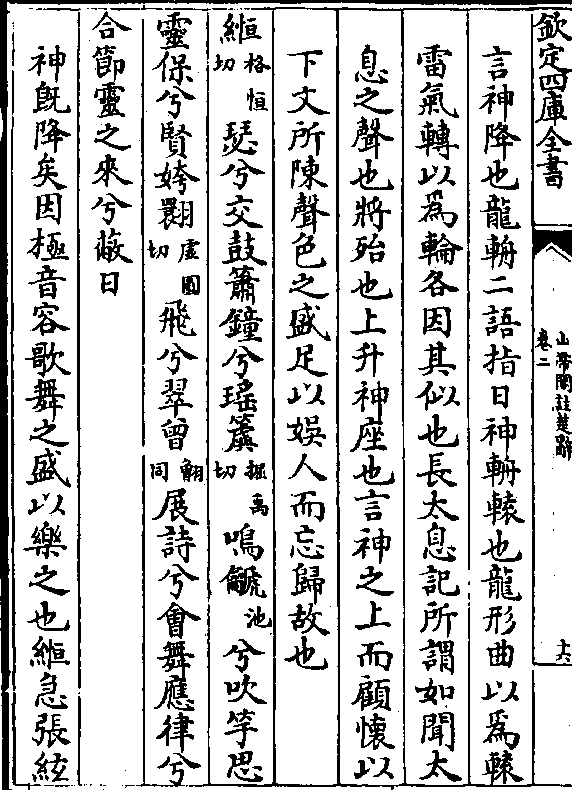 欽定四庫全書
山帶閣註楚辭
卷二
十六
言神降也龍輈二語指日神輈轅也龍形曲以爲轅
雷氣轉以爲輪各因其似也長太息記所謂如聞太
息之聲也將殆也上升神座也言神之上而顧懷以
下文所陳聲色之盛足以娛人而忘歸故也
縆格恒切瑟兮交鼓簫鐘兮瑤簴據禹切鳴鷈池兮吹竽思
靈保兮賢姱翾虛圓切飛兮翠曾翻同展詩兮會舞應律兮
合節靈之來兮蔽日
神旣降矣因極音容歌舞之盛以樂之也縆急張絃